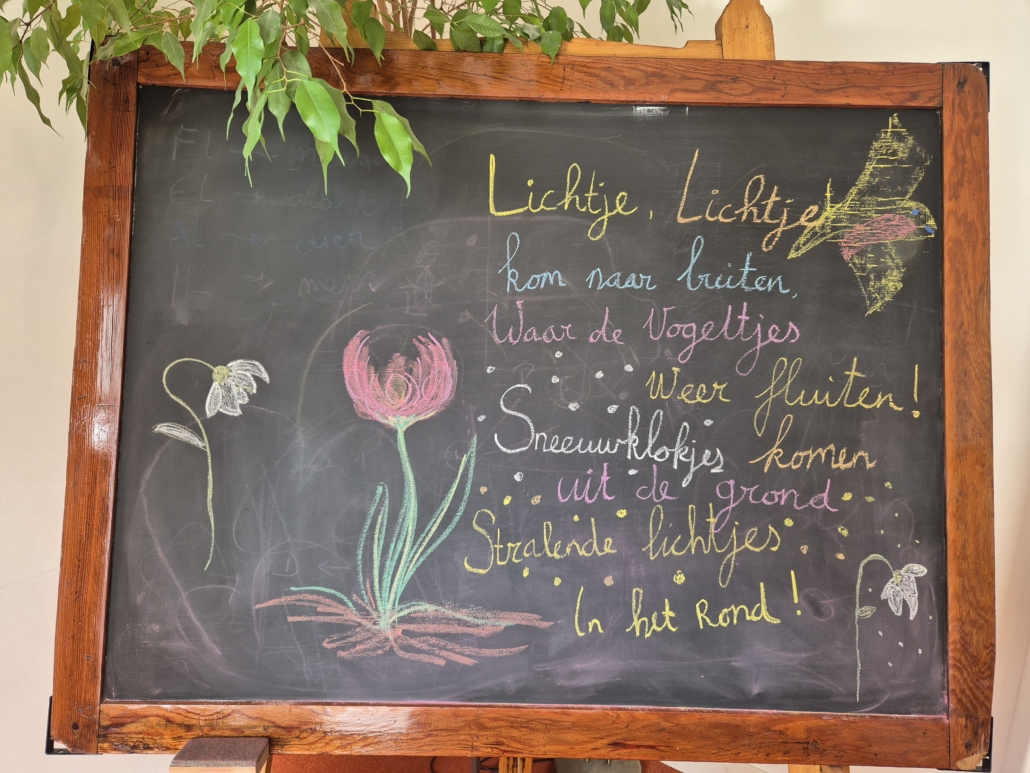 Lichtje, Lichtje
kom naar buiten,
Waar de Vogeltjes
Weer fluiten!
Sneeuwklokjes komen
uit de grond
Stralende lichtjes
In het Rond!